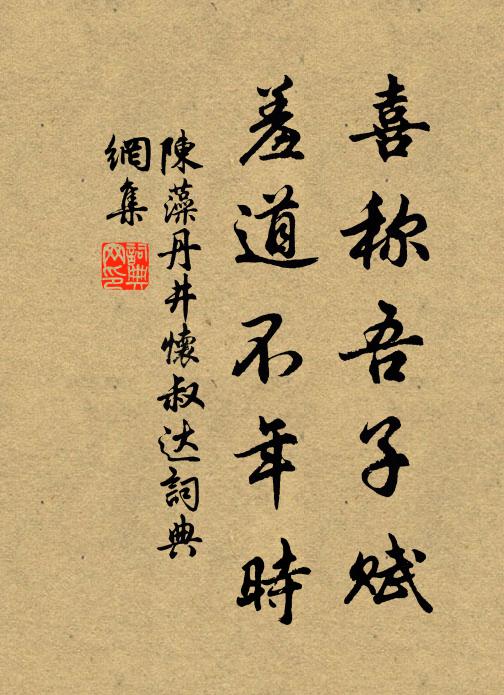 喜称吾子赋
羞道不年時
陳藻丹井懷叔达詞典
網集
詞典
网印